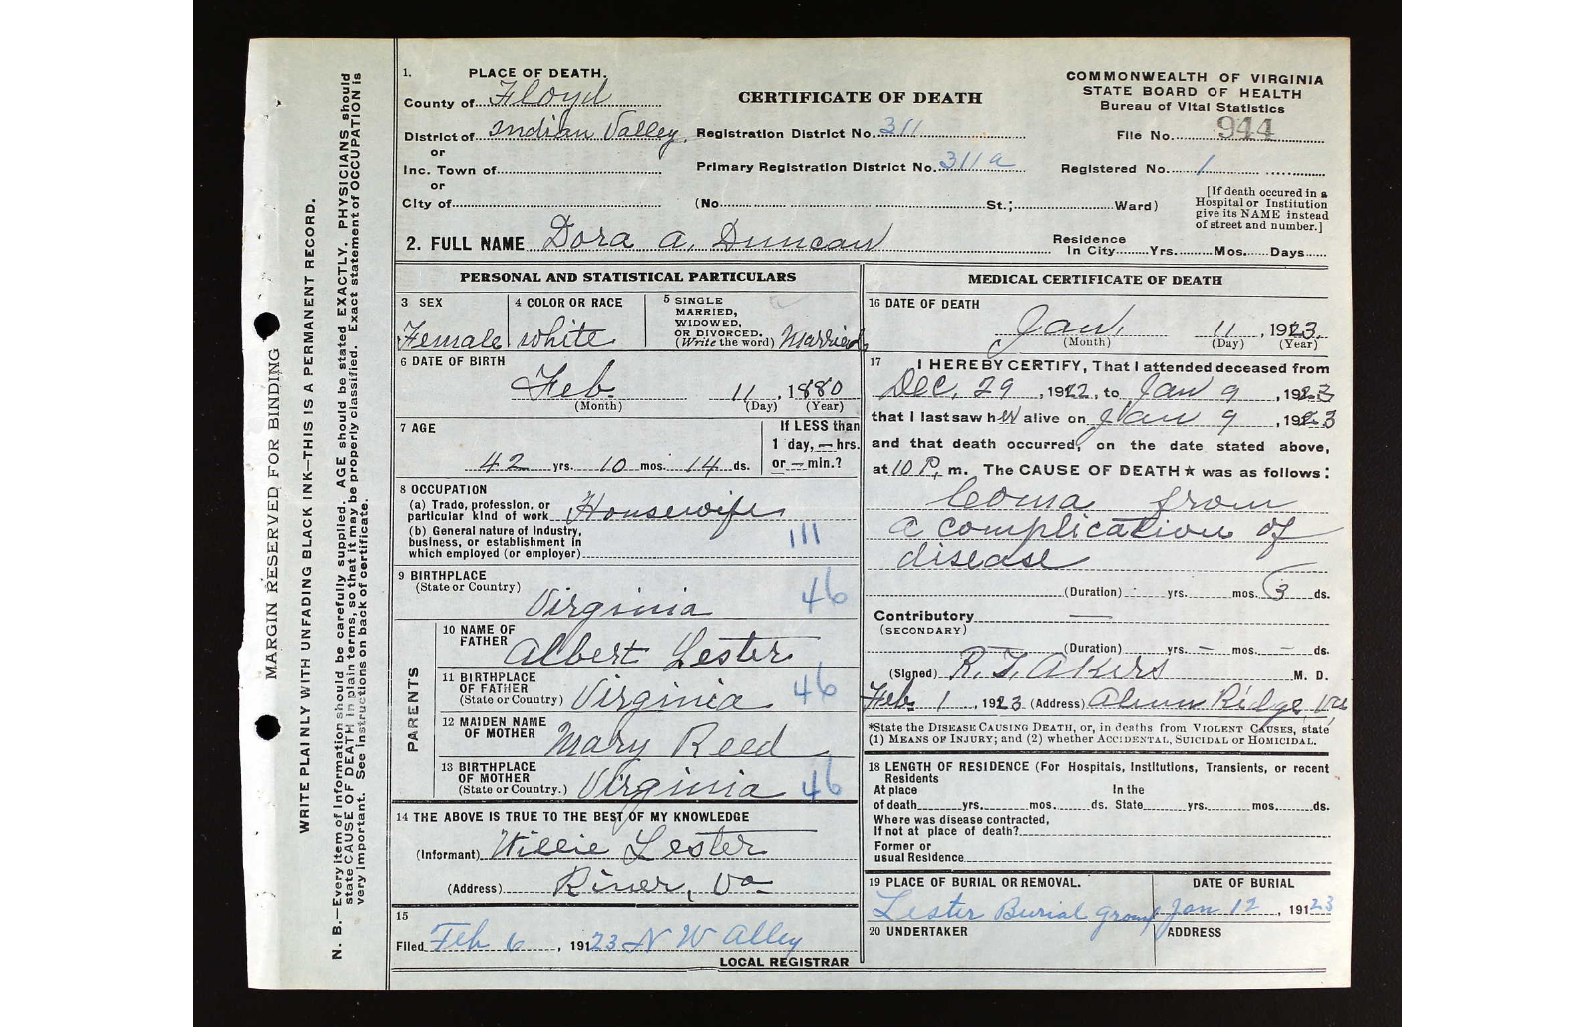 MARGIN RESERVED FOR BINDING
WRITE PLAINLY WITH UNFADING BLACK INK—THIS IS A PERMANENT RECORD.
N. B.—Every item of information should be carefully supplied. AGE should be stated EXACTLY. PHYSICIANS should
state CAUSE OF DEATH in plain terms, so that it may be properly classified. Exact statement of OCCUPATION is
very important. See instructions on back of certificate.
1. PLACE OF DEATH.
County of Floyd
District of Indian Valley
or
Inc. Town of
or
City of
CERTIFICATE OF DEATH
Registration District No. 311
Primary Registration District No. 311a
(No. St.; Ward)
COMMONWEALTH OF VIRGINIA
STATE BOARD OF HEALTH
Bureau of Vital Statistics
File No. 944
Registered No. 1
[If death occured in a
Hospital or Institution
give its NAME instead
of street and number.]
2. FULL NAME Dora A. Duncan
Residence
In City Yrs. Mos. Days
PERSONAL AND STATISTICAL PARTICULARS
3 SEX
Female
4 COLOR OR RACE
white
5 SINGLE
MARRIED,
WIDOWED,
OR DIVORCED.
(Write the word) Married
6 DATE OF BIRTH
Feb. 11, 1880
(Month) (Day) (Year)
7 AGE
42 yrs. 10 mos. 14 ds.
If LESS than
1 day, — hrs.
or — min.?
8 OCCUPATION
(a) Trade, profession, or
particular kind of work Housewife
(b) General nature of Industry,
business, or establishment in
which employed (or employer)
111
9 BIRTHPLACE
(State or Country)
Virginia 46
PARENTS
10 NAME OF
FATHER Albert Lester
11 BIRTHPLACE
OF FATHER
(State or Country) Virginia 46
12 MAIDEN NAME
OF MOTHER Mary Reed
13 BIRTHPLACE
OF MOTHER
(State or Country.) Virginia 46
14 THE ABOVE IS TRUE TO THE BEST OF MY KNOWLEDGE
(Informant) Willie Lester
(Address) Riner, Va
15
Filed Feb 6, 1923 N W Alley
LOCAL REGISTRAR
MEDICAL CERTIFICATE OF DEATH
16 DATE OF DEATH
Jan. 11, 1923
(Month) (Day) (Year)
17 I HEREBY CERTIFY, That I attended deceased from
Dec. 29, 1922, to Jan 9, 1923
that I last saw her alive on Jan 9, 1923
and that death occurred, on the date stated above,
at 10 P. m. The CAUSE OF DEATH★ was as follows:
Coma from
a complication of
disease
(Duration) yrs. mos. 3 ds.
Contributory —
(SECONDARY)
(Duration) yrs. — mos. — ds.
(Signed) R. T. Akers M. D.
Feb. 1, 1923 (Address) Alum Ridge, Va
*State the DISEASE CAUSING DEATH, or, in deaths from VIOLENT CAUSES, state
(1) MEANS OF INJURY; and (2) whether ACCIDENTAL, SUICIDAL or HOMICIDAL.
18 LENGTH OF RESIDENCE (For Hospitals, Institutions, Transients, or recent
Residents
At place In the
of death yrs. mos. ds. State yrs. mos. ds.
Where was disease contracted,
If not at place of death?
Former or
usual Residence
19 PLACE OF BURIAL OR REMOVAL. DATE OF BURIAL
Lester Burial ground Jan 12, 1923
20 UNDERTAKER ADDRESS